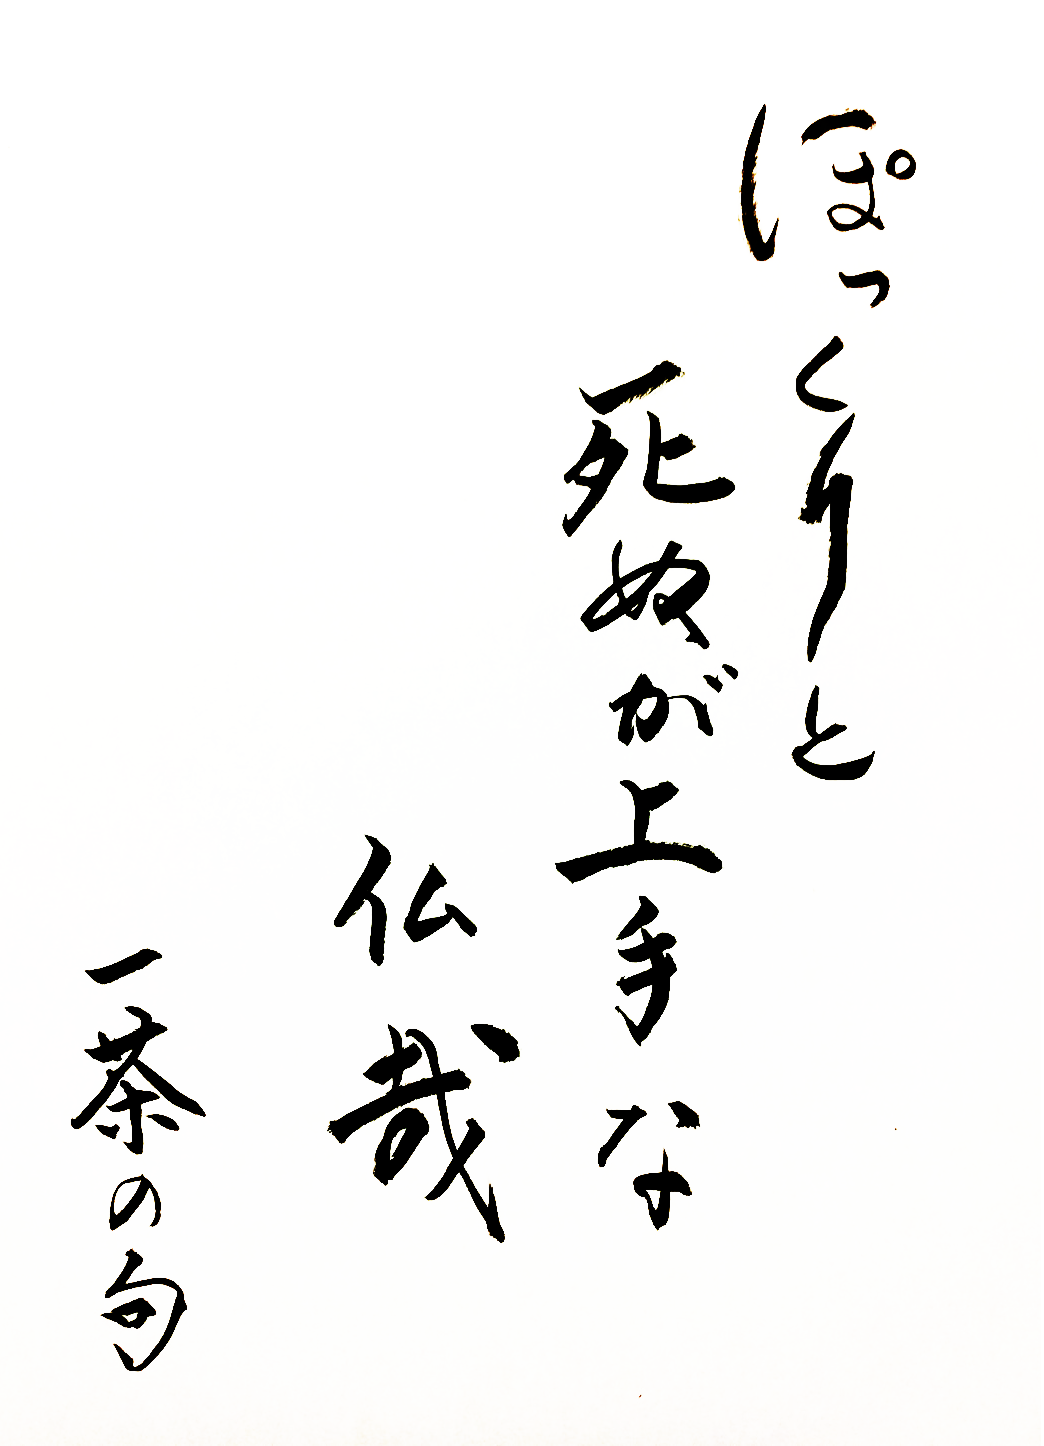 ぽっくりと
死ぬが上手な
仏哉
一茶の句